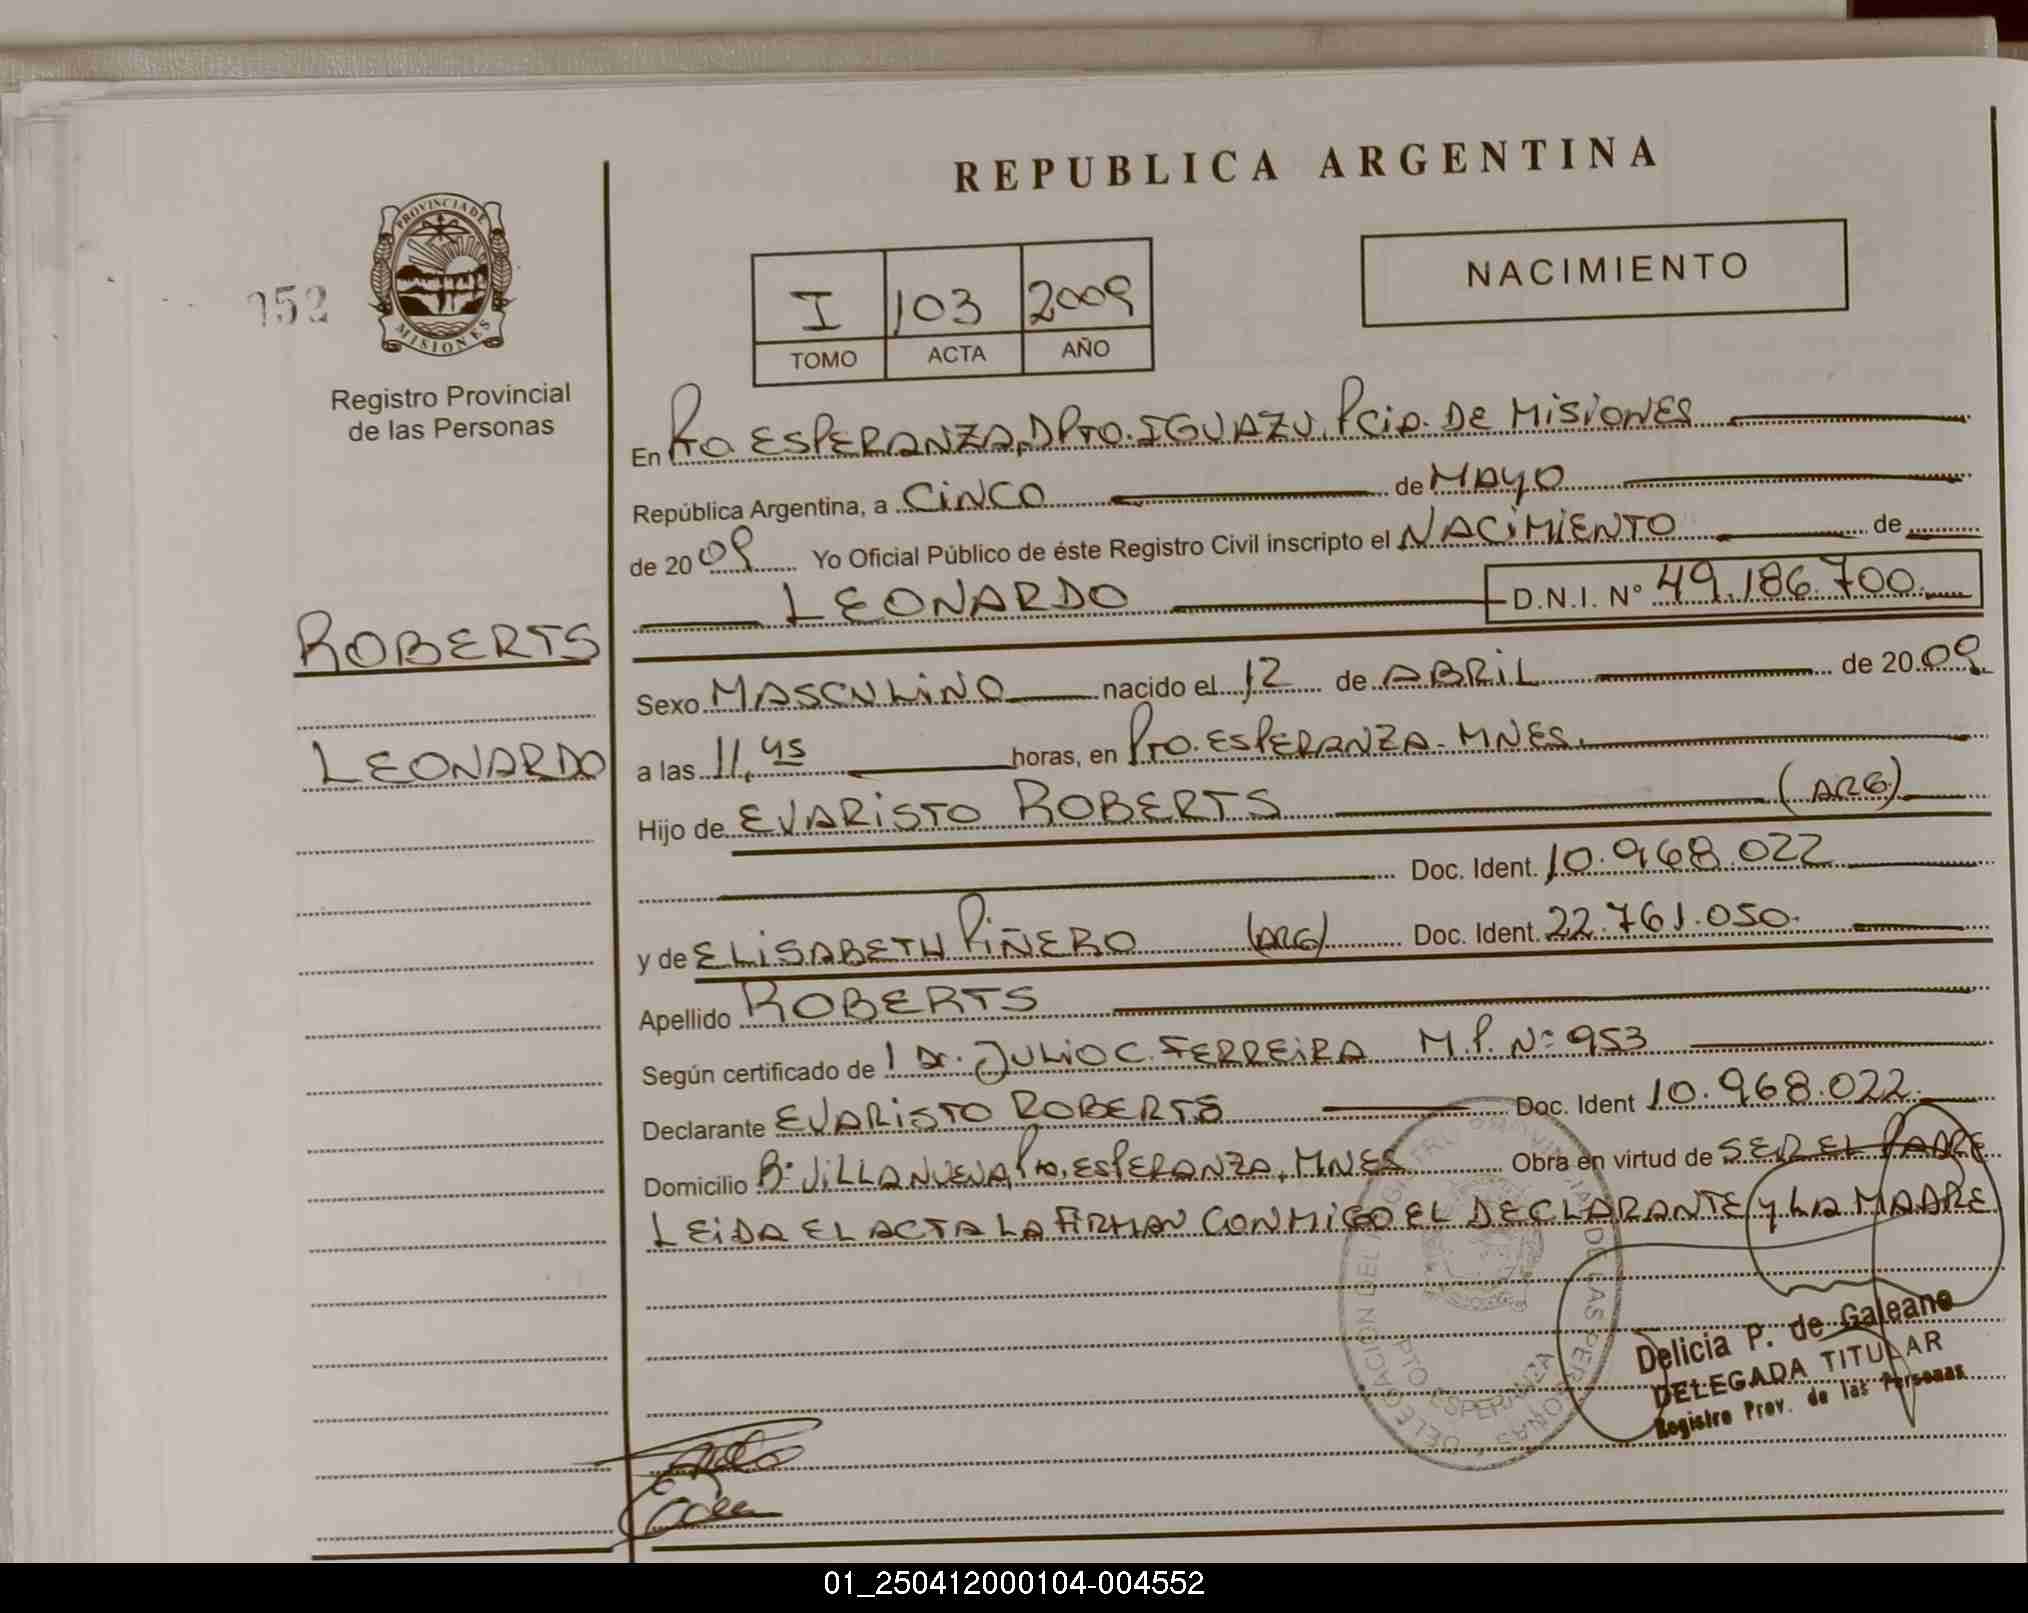 REPUBLICA ARGENTINA
152
PROVINCIA DE MISIONES
Registro Provincial
de las Personas
I 103 2009
TOMO ACTA AÑO
NACIMIENTO
En Pto. ESPERANZA, DPTO. IGUAZU, PCIA. DE MISIONES
República Argentina, a CINCO de MAYO
de 2009 Yo Oficial Público de éste Registro Civil inscripto el NACIMIENTO de
LEONARDO D.N.I. N° 49.186.700
ROBERTS
Sexo MASCULINO nacido el 12 de ABRIL de 2009
LEONARDO
a las 11,45 horas, en PTO. ESPERANZA - MNES.
Hijo de EVARISTO ROBERTS (ARG)
Doc. Ident. 10.968.022
y de ELISABETH PIÑERO (ARG) Doc. Ident. 22.761.050
Apellido ROBERTS
Según certificado de 1 Dr. JULIO C. FERREIRA M.P. Nº 953
Declarante EVARISTO ROBERTS Doc. Ident 10.968.022
Domicilio Bº VILLANUEVA, Pto. ESPERANZA, MNES Obra en virtud de SER EL PADRE
LEIDA EL ACTA LA FIRMAN CONMIGO EL DECLARANTE Y LA MADRE
DELEGACION DEL REGISTRO PROVINCIAL DE LAS PERSONAS
PTO ESPERANZA
Delicia P. de Galeano
DELEGADA TITULAR
Registro Prov. de las Personas
01_250412000104-004552